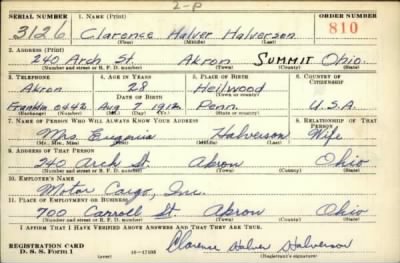 2-P
SERIAL NUMBER 1. NAME (Print) ORDER NUMBER
3126 Clarence Halver Halverson 810
(First) (Middle) (Last)
2. ADDRESS (Print)
240 Arch St. Akron SUMMIT Ohio.
(Number and street or R. F. D. number) (Town) (County) (State)
3. TELEPHONE 4. AGE IN YEARS 5. PLACE OF BIRTH 6. COUNTRY OF CITIZENSHIP
Akron 28 Heilwood
(Exchange) DATE OF BIRTH (Town or county)
Franklin 0442 Aug 7 1912 Penn. U.S.A.
(Number) (Mo.) (Day) (Yr.) (State or country)
7. NAME OF PERSON WHO WILL ALWAYS KNOW YOUR ADDRESS 8. RELATIONSHIP OF THAT PERSON
Mrs. Eugenia Halverson Wife
(Mr., Mrs., Miss) (First) (Middle) (Last)
9. ADDRESS OF THAT PERSON
240 Arch St Akron Ohio
(Number and street or R. F. D. number) (Town) (County) (State)
10. EMPLOYER'S NAME
Motor Cargo, Inc.
11. PLACE OF EMPLOYMENT OR BUSINESS
700 Carroll St. Akron Ohio
(Number and street or R. F. D. number) (Town) (County) (State)
I AFFIRM THAT I HAVE VERIFIED ABOVE ANSWERS AND THAT THEY ARE TRUE.
REGISTRATION CARD
D. S. S. Form 1 (over) Clarence Halver Halverson
(Registrant's signature)